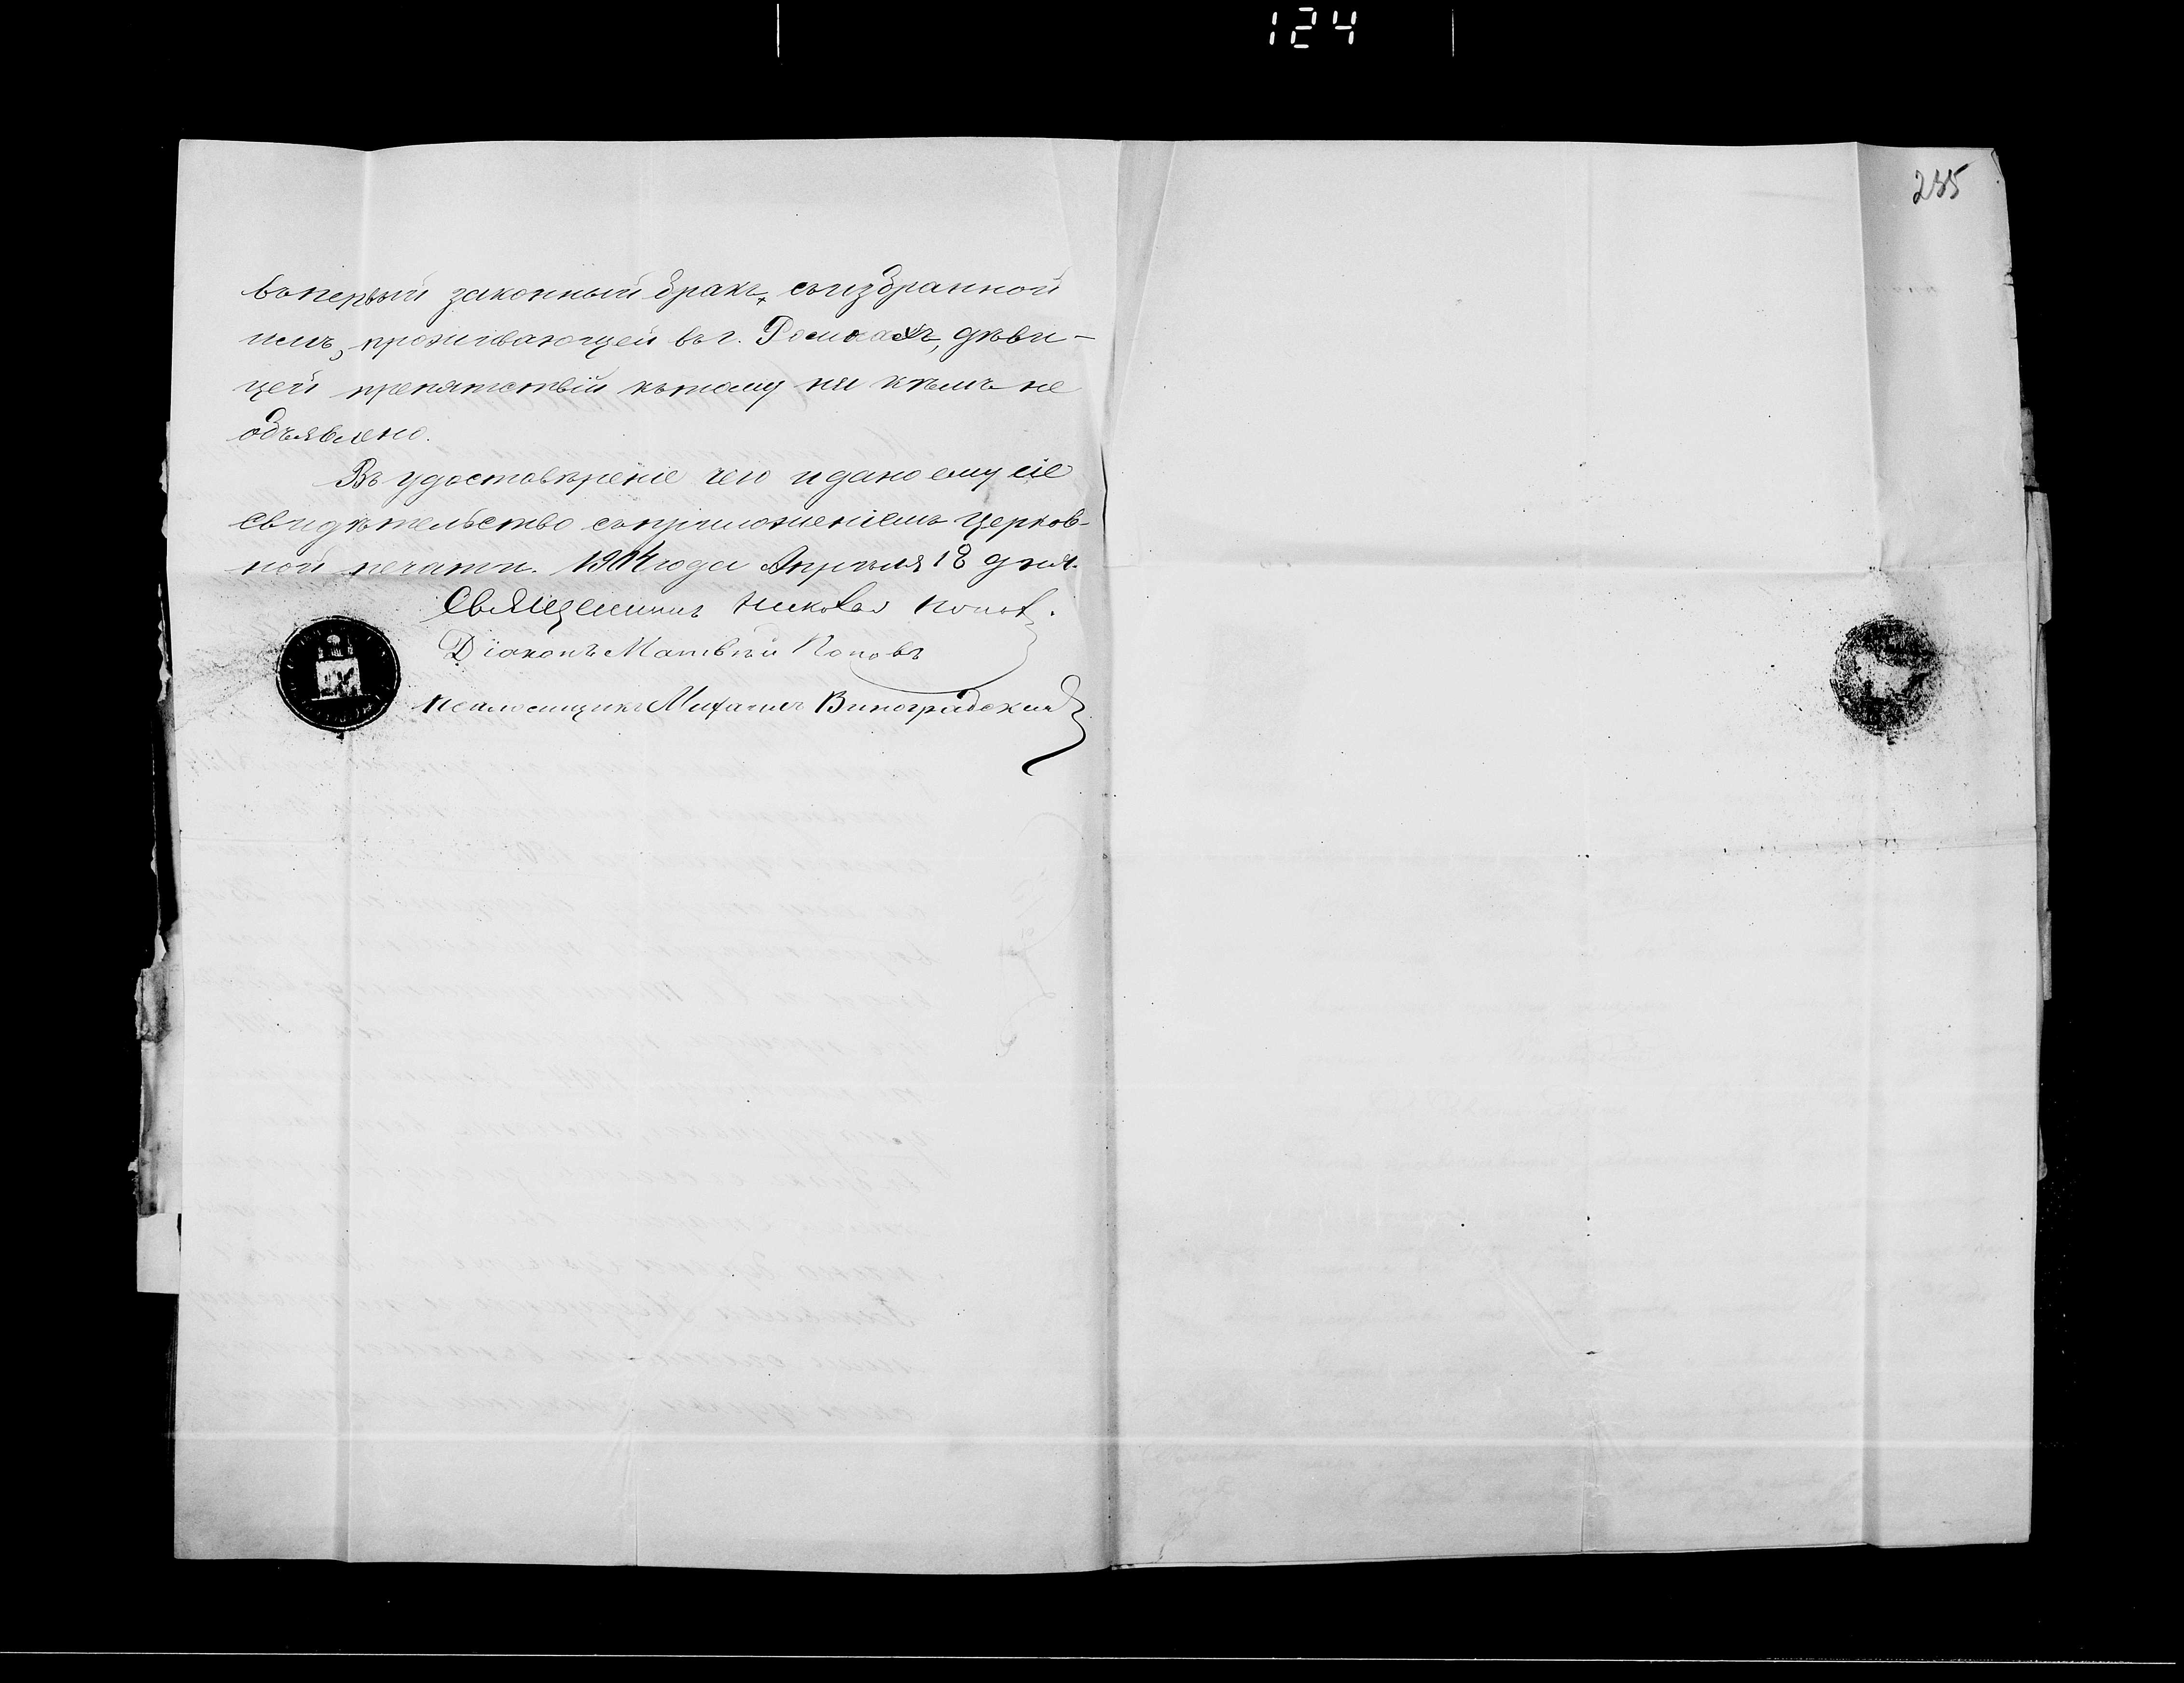 124
235
въ первый законный бракъ, съ избранной
имъ, проживающей въ г. Ромнахъ, дѣви-
цей препятствій къ тому ни кѣмъ не
объявлено.
Въ удостовѣреніе чего и дано ему сіе
свидѣтельство съ приложеніемъ церков-
ной печати. 1914 года Апрѣля 18 дня.
Священникъ Николай Попов.
Діаконъ Матвѣй Поповъ
Псаломщикъ Михаилъ Виноградскій